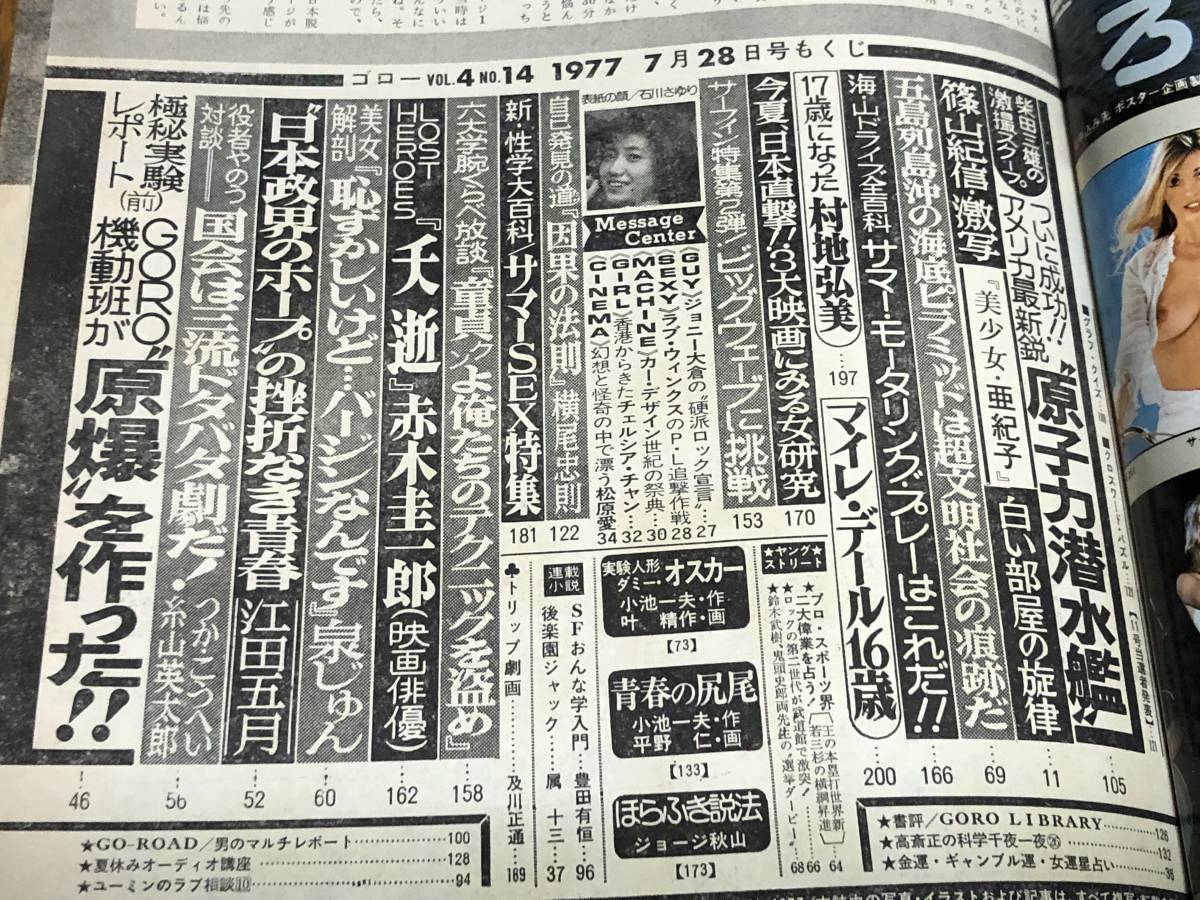 ゴロー VOL.4 NO.14 1977 7月28日号もくじ
柴田三雄の激撮スクープ
ついに成功!!アメリカ最新鋭
“原子力潜水艦” 105
篠山紀信・激写
『美少女・亜紀子』白い部屋の旋律 11
五島列島沖の海底ピラミッドは超文明社会の痕跡だ 69
海・山ドライブ全百科 サマー・モータリング・プレーはこれだ!! 166
17歳になった村地弘美 197
マイレ・デール16歳 200
今夏、日本直撃!!3大映画にみる女研究 170
サーフィン特集第2弾!ビッグウェーブに挑戦 153
表紙の顔/石川さゆり
Message Center
〈GUY〉ジョニー大倉の“硬派ロック宣言” 27
〈SEXY〉ラブ・ウィンクスのP・L追撃作戦 28
〈MACHINE〉カー・デザイン世紀の祭典 30
〈GIRL〉香港からきたチェルシア・チャン 32
〈CINEMA〉幻想と怪奇の中で漂う松原愛 34
自己発見の道『因果の法則』横尾忠則 122
新・性学大百科/サマーSEX特集 181
六大学腕くらべ放談『童貞クンよ俺たちのテクニックを盗め』 158
LOST HEROES『夭逝』赤木圭一郎(映画俳優) 162
美女解剖『恥ずかしいけど…バージンなんです』泉じゅん 60
“日本政界のホープ”の挫折なき青春 江田五月 52
役者やのう対談──国会は三流ドタバタ劇だ!つかこうへい 糸山英太郎 56
極秘実験レポート(前)
“GORO”機動班が
“原爆”を作った!! 46
★ヤングストリート★
★プロ・スポーツ界二大偉業を占う!
王の本塁打世界新
若三杉の横綱昇進 64
★ロックの第二世代が武道館で激突! 66
★鈴木武樹・鬼頭史郎両先生の“選挙ダービー” 68
実験人形ダミー・オスカー
小池一夫・作
叶 精作・画
【73】
青春の尻尾
小池一夫・作
平野 仁・画
【133】
ほらふき説法
ジョージ秋山
【173】
連載小説
SFおんな学入門 豊田有恒 96
後楽園ジャック 属 十三 37
♣トリップ劇画 及川正通 189
★GO-ROAD/男のマルチレポート 100
★夏休みオーディオ講座 128
★ユーミンのラブ相談⑩ 94
★書評/GORO LIBRARY 126
★高斎正の科学千夜一夜㉖ 132
★金運・ギャンブル運・女運星占い 36
■グラフ・クイズ
■クロスワード・パズル